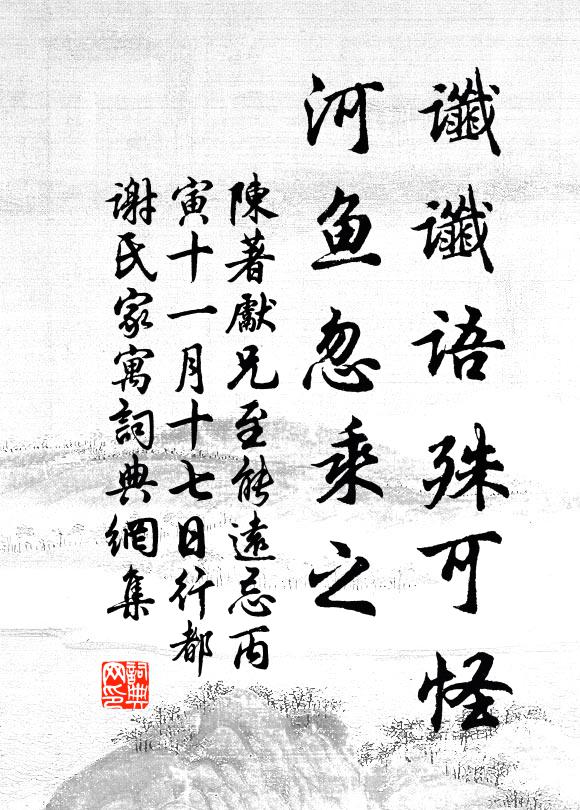 讖讖語殊可怪
河魚忽乘之
陳著獻兄至能遠忌丙
寅十一月十七日行都
謝氏家寓詞典網集
詞典
网印